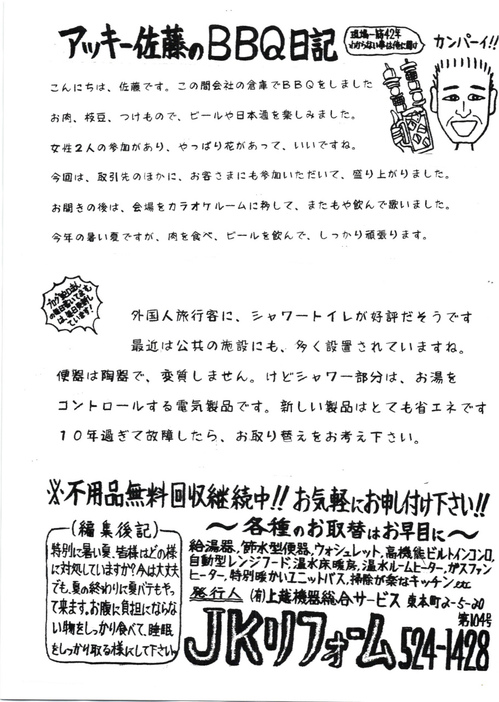 アッキー佐藤のBBQ日記
現場一筋42年
わからない事は俺に聞け
カンパーイ!!
こんにちは、佐藤です。この間会社の倉庫でBBQをしました
お肉、枝豆、つけもので、ビールや日本酒を楽しみました。
女性2人の参加があり、やっぱり花があって、いいですね。
今回は、取引先のほかに、お客さまにも参加いただいて、盛り上がりました。
お開きの後は、会場をカラオケルームに移して、またもや飲んで歌いました。
今年の暑い夏ですが、肉を食べ、ビールを飲んで、しっかり頑張ります。
外国人旅行客に、シャワートイレが好評だそうです
最近は公共の施設にも、多く設置されていますね。
便器は陶器で、変質しません。けどシャワー部分は、お湯を
コントロールする電気製品です。新しい製品はとても省エネです
10年過ぎて故障したら、お取り替えをお考え下さい。
※不用品無料回収継続中!! お気軽にお申し付け下さい!!
〜各種のお取替はお早目に〜
給湯器、節水型便器、ウォシュレット、高機能ビルトインコンロ、
自動型レンジフード、温水床暖房、温水ルームヒーター、ガスファン
ヒーター、特別暖かいユニットバス、掃除が楽なキッチン etc
(編集後記)
特別に暑い夏、皆様はどの様
に対処していますか?今は大丈夫
でも、夏の終わりに夏バテもやっ
て来ます。お腹に負担にならな
い物をしっかり食べて、睡眠
をしっかり取る様にして下さい。
発行人 (有)上越機器総合サービス 東本町2-5-20
第104号
JKリフォーム 524-1428